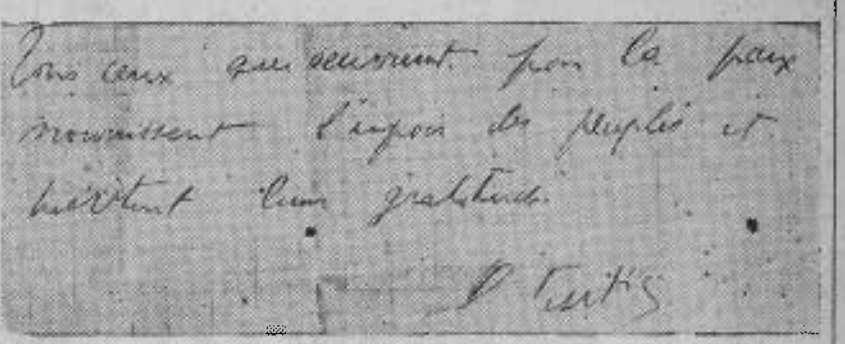 Tous ceux qui oeuvrent pour la paix
nourrissent l'espoir des peuples et
méritent leur gratitude.